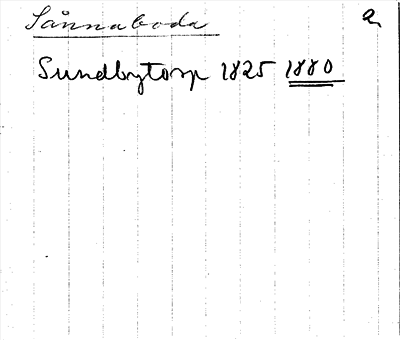 Sånnaboda a
Sundbytorp 1825 1880